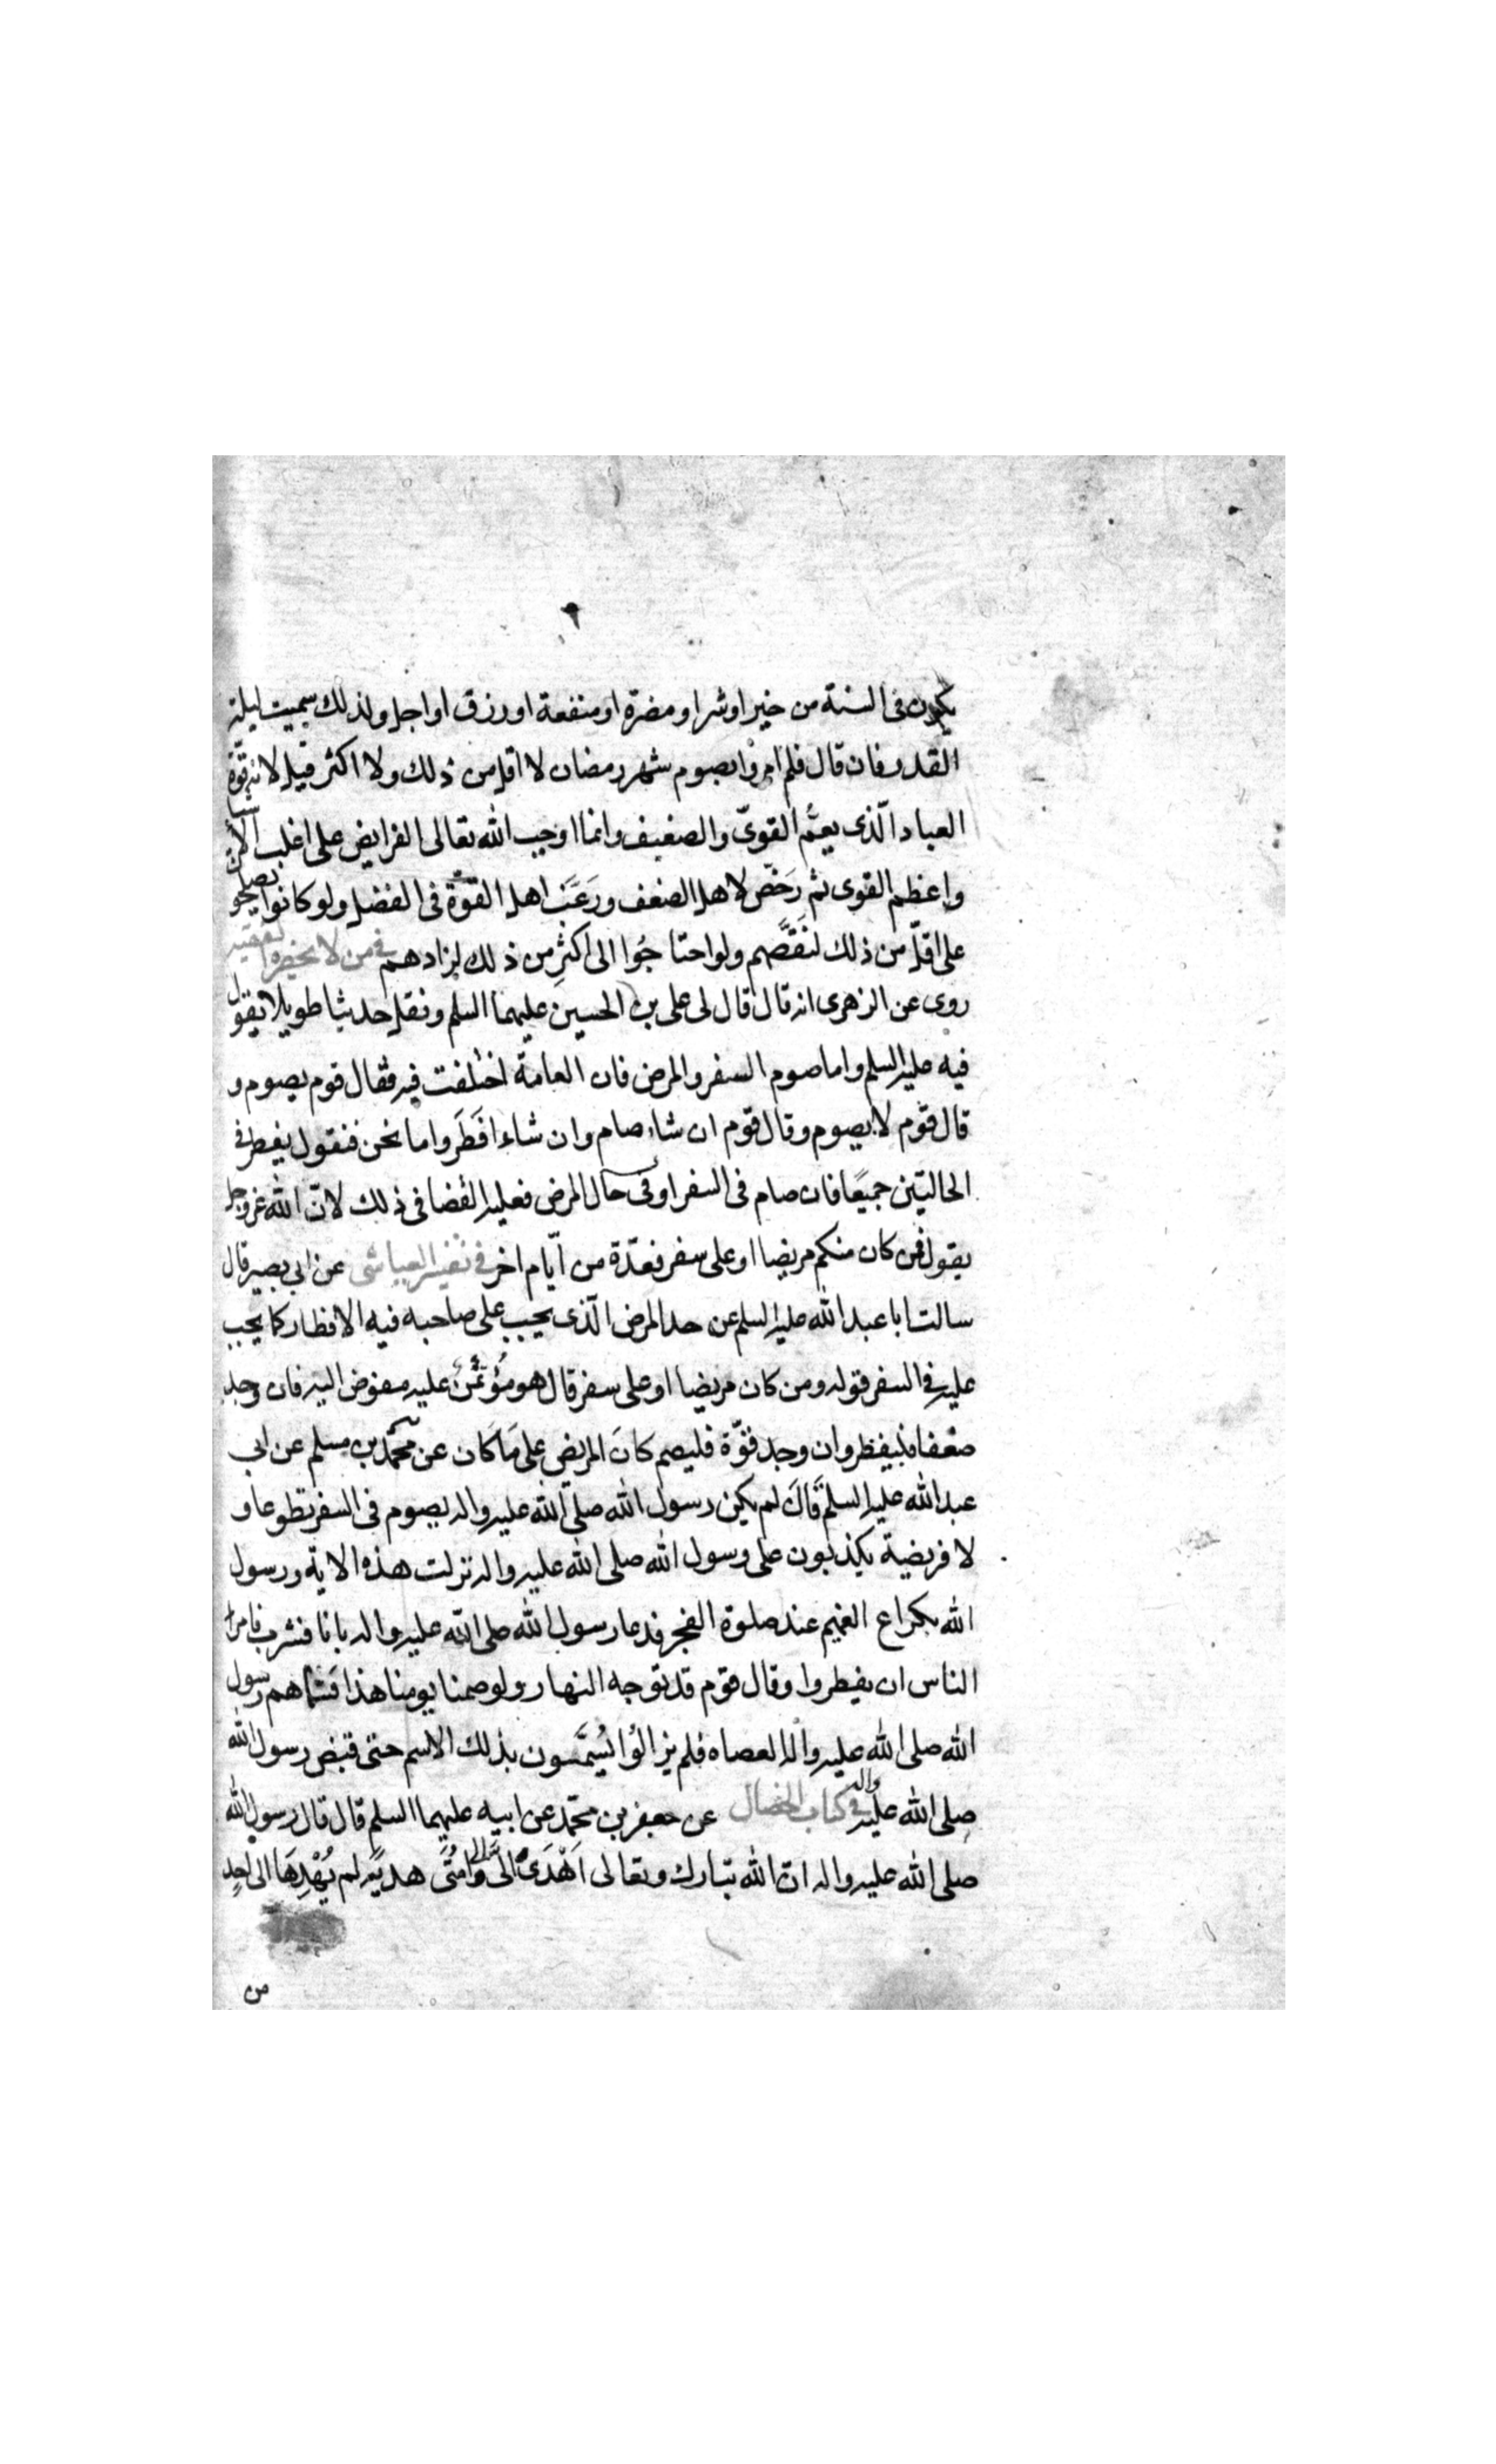 يكون فى السنة من خير او شر او مضرة او منفعة او رزق او اجل ولذلك سميت ليلة
القدر فان قال فلم امروا بصوم شهر رمضان لا اقل من ذلك ولا اكثر قيل لانه قوّة
العباد الّذى يعمُّ القوىّ والضعيف وانما اوجب الله تعالى الفرايض على اغلب الاشيا
واعظم القوى ثم رَخّص لاهل الضعف ورَغَّب اهل القوّة فى الفضل ولو كانوا يصلحو
على اقلّ من ذلك لنَقَصَّهم ولو احتاجُوا الى اكثرِ من ذلك لزادهم فى من لا يحضره الفقيه
روى عن الزهرى انه قال قال لى على بن الحسين عليهما السلم ونقل حديثا طويلا يقول
فيه عليه السلم واما صوم السفر والمرض فان العامة اختلفت فيه فقال قوم يصوم و
قال قوم لا يصوم وقال قوم ان شاء صام وان شاء افَطَر واما نحن فنقول يفطر فى
الحالتين جميعًا فان صام فى السفر او فى حال المرض فعليه القضا فى ذلك لانّ الله عزوجل
يقول فمن كان منكم مريضا او على سفر فعدّة من ايّام اخر فى تفسير العياشى عن ابى بصير قال
سالت ابا عبد الله عليه السلم عن حد المرض الّذى يجب على صاحبه فيه الافطار كما يجب
عليه فى السفر قوله ومن كان مريضا او على سفر قال هو مُؤتَمَنٌ عليه مفوض اليه فان وجد
ضعفا فليفطر وان وجد قوّة فليصم كانَ المريض على مَا كَان عن محمّد بن مسلم عن ابى
عبد الله عليه السلم قَالَ لم يكن رسول الله صلى الله عليه واله يصوم فى السفر تطوعا و
لا فريضة يكذبون على رسول الله صلى الله عليه واله نزلت هذه الاية ورسول
الله بكراع الغميم عند صلوة الفجر فدعا رسول الله صلى الله عليه واله بانا فشرب فامر
الناس ان يفطروا وقال قوم قد توجه النهار ولو صمنا يومنا هذا فسَمّاهم رسول
الله صلى الله عليه واله العصاه فلم يزالُوا يُسَمَّون بذلك الاسم حتى قبض رسول الله
صلى الله عليه واله فى كتاب الخصال عن جعفر بن محمّد عن ابيه عليهما السلم قال قال رسول الله
صلى الله عليه واله ان الله تبارك وتعالى اَهْدَى الىَّ والى امتى هديّة لم يُهْدِهَا الى احدٍ
من